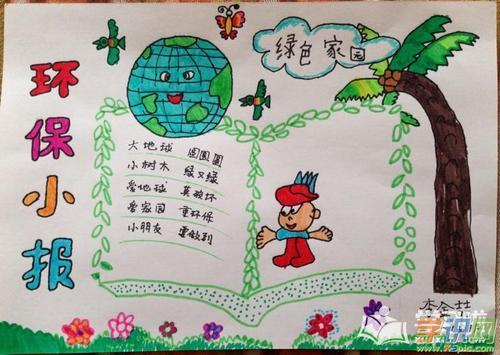 环保小报
绿色家园
大地球 圆圆圆
小树木 绿又绿
爱地球 莫破坏
爱家园 重环保
小朋友 要做到